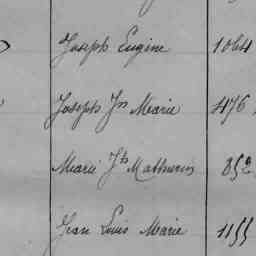 Joseph Eugène 1064
Joseph Jn Marie 476
Marie Jh Mathurin 852
Jean Louis Marie 1155